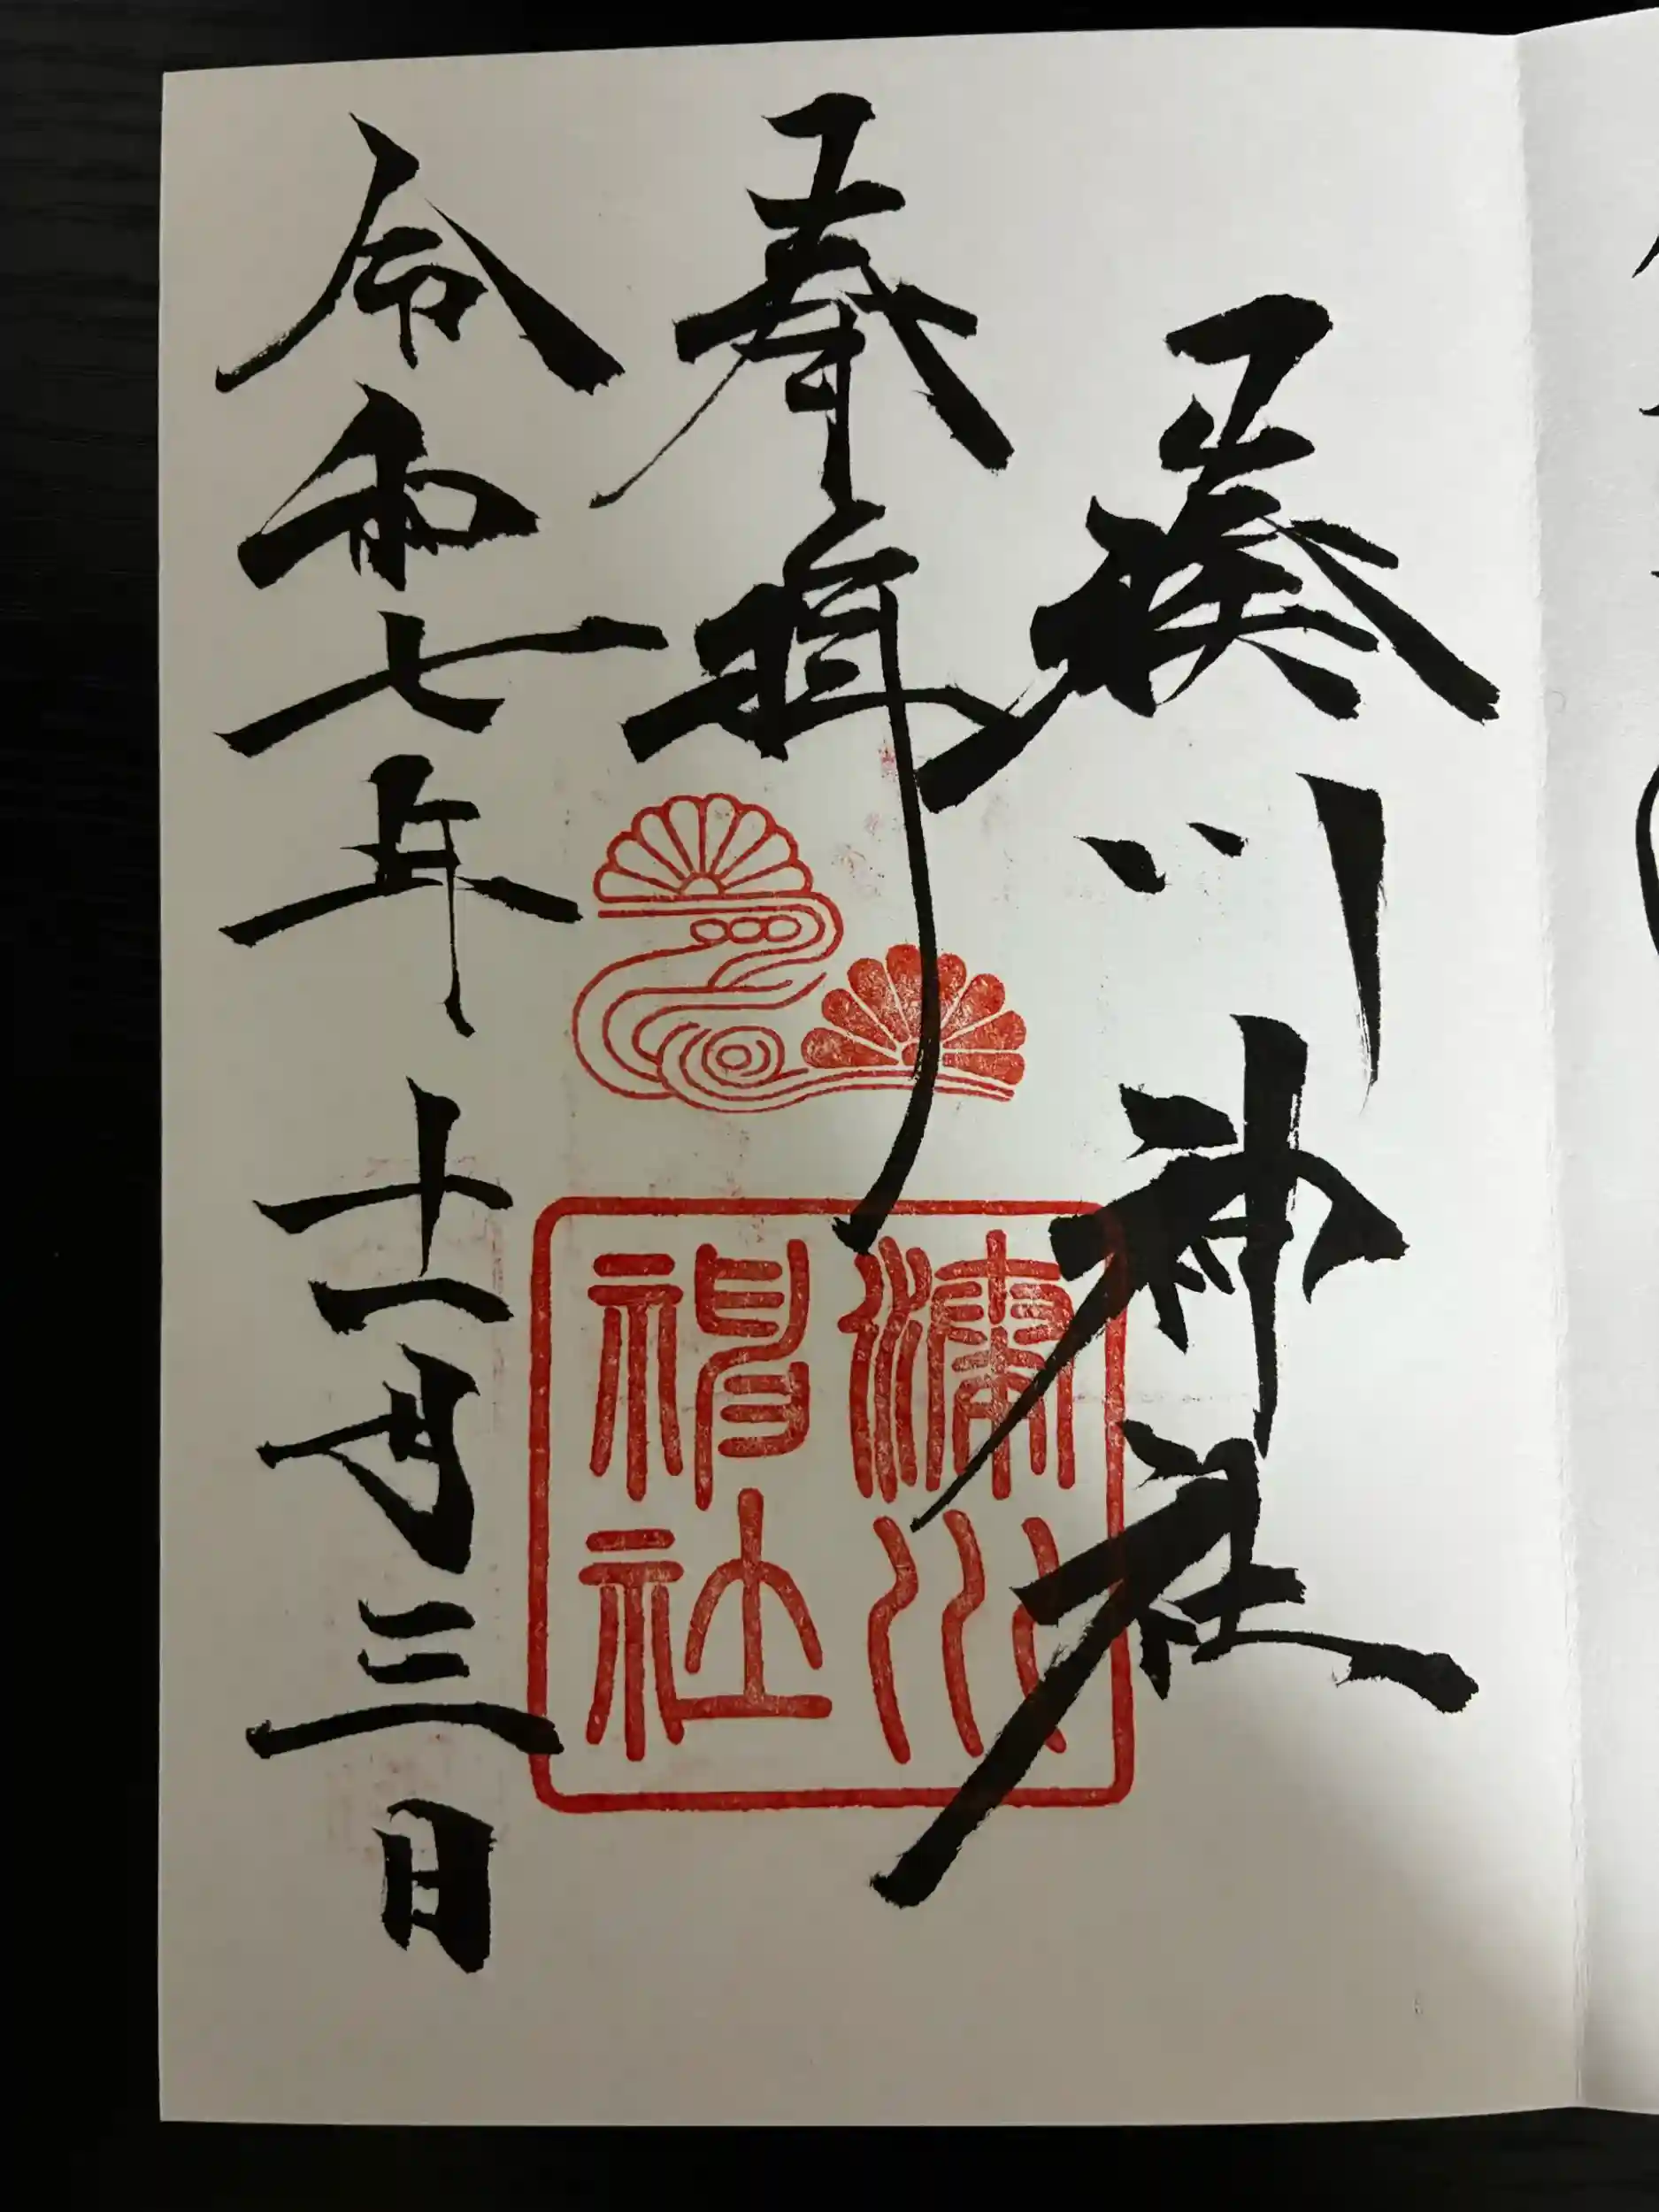 湊川神社
奉拝
湊川
神社
令和七年十一月三日